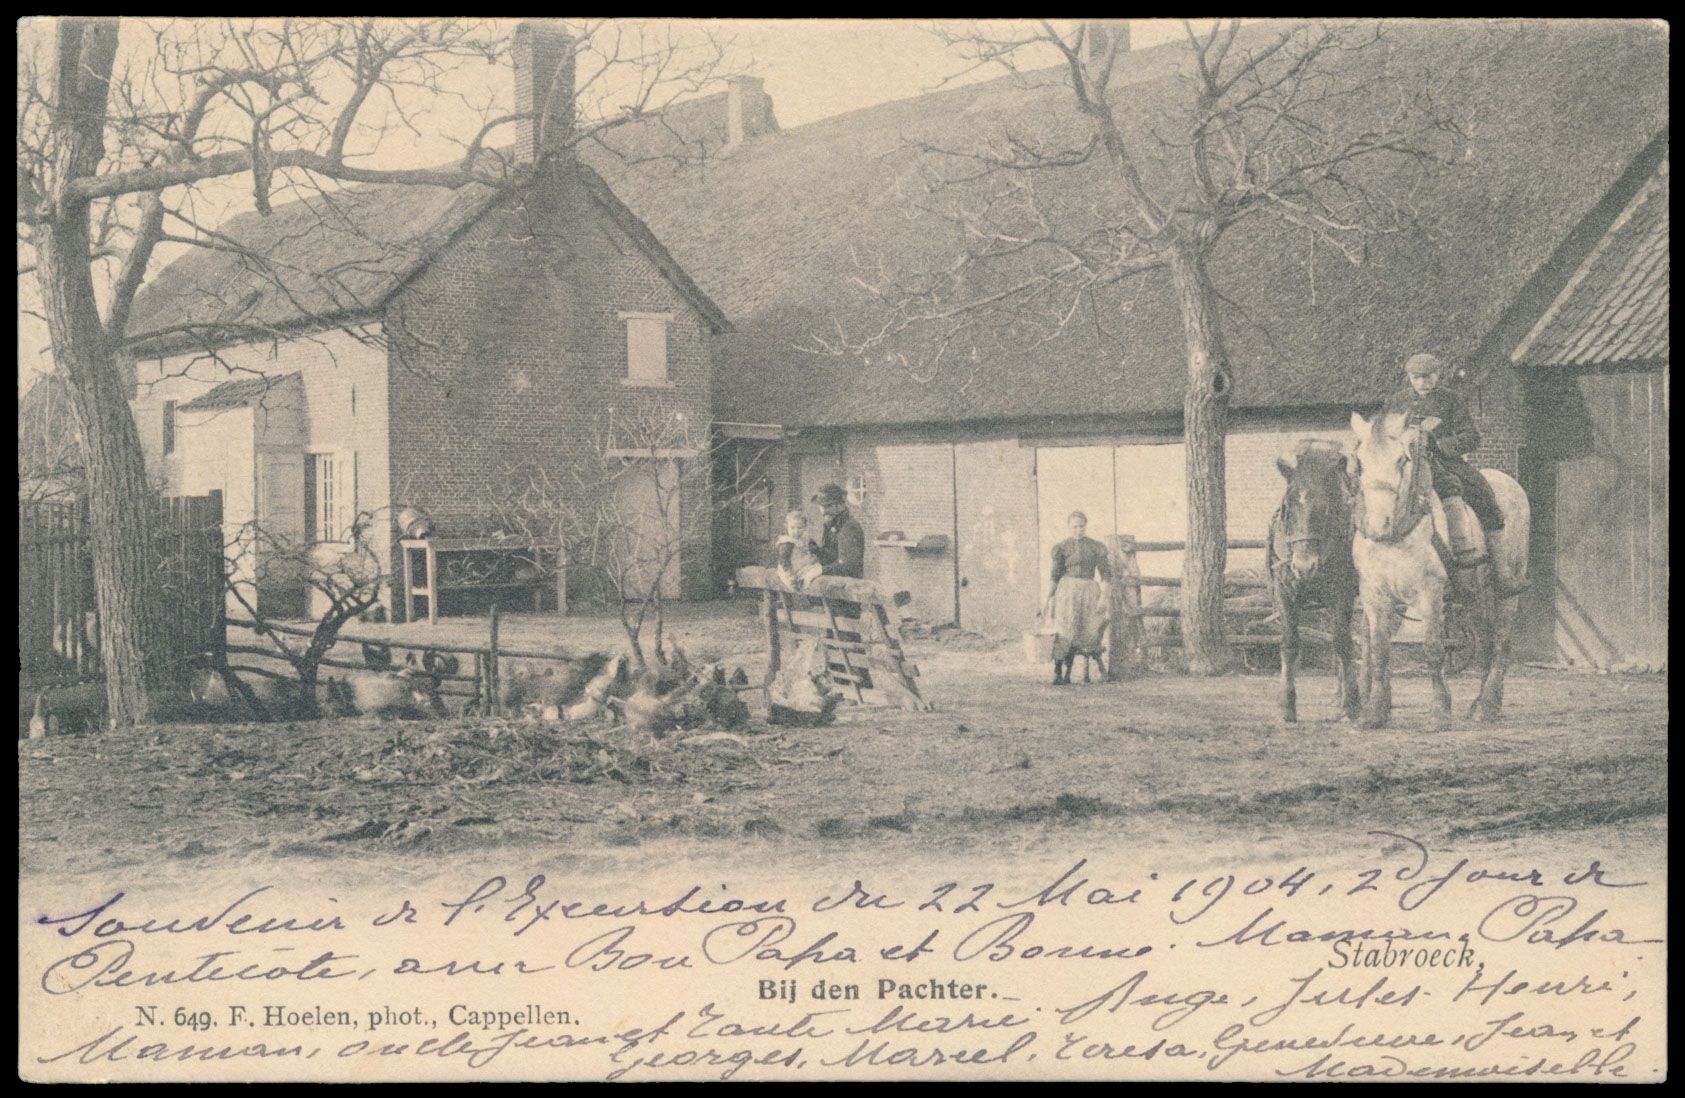 Souvenir de l'Excursion du 22 Mai 1904, 2d Jour de
Pentecôte, avec Bon Papa et Bonne Maman, Papa
Stabroeck,
Bij den Pachter.
N. 649. F. Hoelen, phot., Cappellen.
Maman, oncle Jean et Tante Marie. Ange, Jules. Henri,
Georges, Marcel, Teresa, Geneviève, Jean et
Mademoiselle.